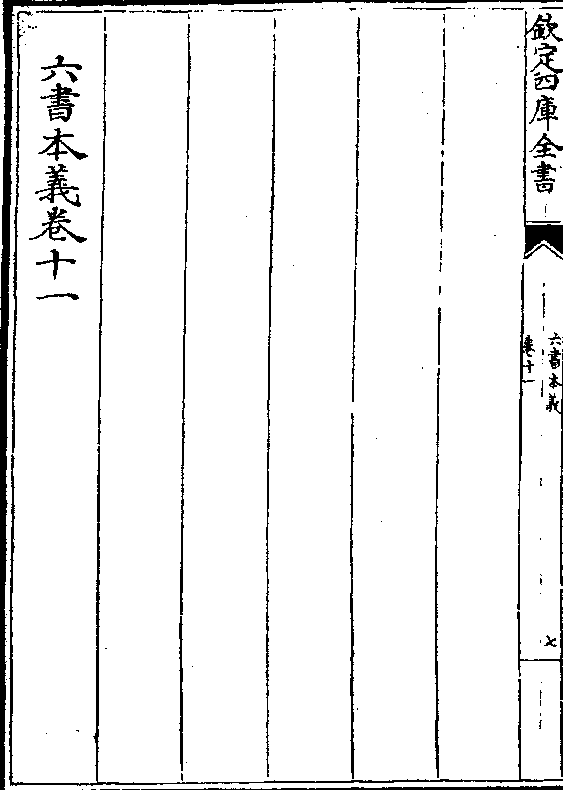 欽定四庫全書
六書本義
卷十一
七
六書本義卷十一